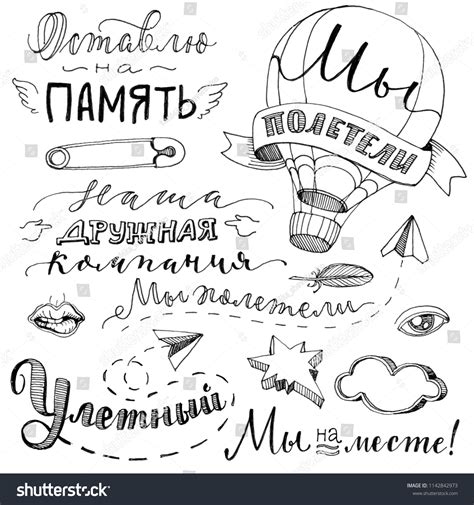 Оставлю
на
ПАМЯТЬ
Мы
ПОЛЕТЕЛИ
Наша
ДРУЖНАЯ
компания
Мы полетели
Улетный
Мы на месте!
shutterstock.com · 1142842973